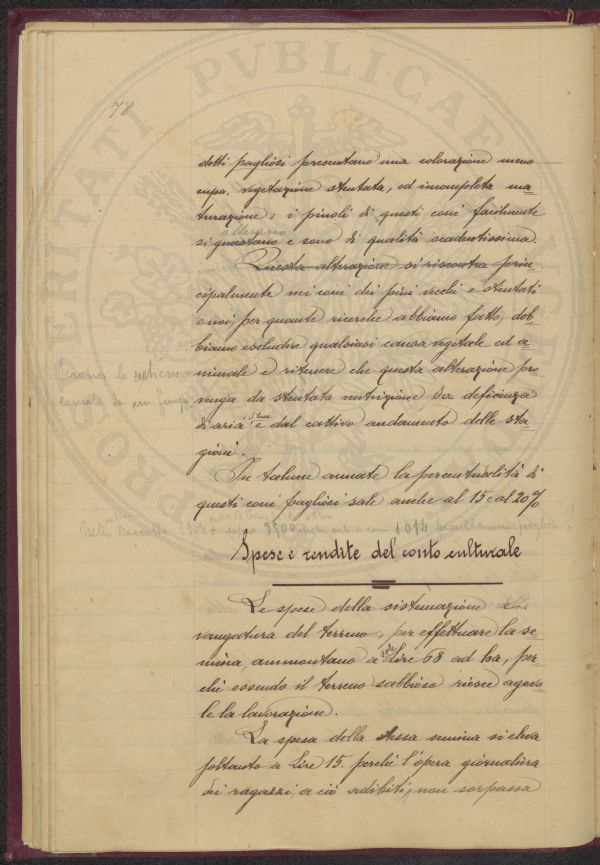 78
detti pagliosi presentano una colorazione meno
cupa, vegetazione stentata, ed incompleta ma-
turazione; i pinoli di questi coni facilmente
alterano
si guastano e sono di qualità scadentissima.
Questa alterazione si riscontra prin-
cipalmente nei coni dei pini vecchi e stentati
e noi, per quante ricerche abbiamo fatto, dob-
biamo escludere qualsiasi causa vegetale ed a-
nimale e ritenere che questa alterazione pro-
venga da stentata nutrizione, da deficienza
di aria e dal cattivo andamento delle sta-
gioni.
causata da un fungo
In talune annate la percentualità di
questi coni pagliosi sale anche al 15 e al 20%
Nella raccolta sopra 3300 1014 pagliosi
Spese e rendite del conto culturale
Le spese della sistemazione e
vangatura del terreno, per effettuare la se-
sole
mina, ammontano a Lire 68 ad ha, per-
chè essendo il terreno sabbioso riesce agevo-
le la lavorazione.
La spesa della stessa semina si eleva
soltanto a Lire 15. perchè l'opera giornaliera
dei ragazzi, a ciò adibiti, non sorpassa